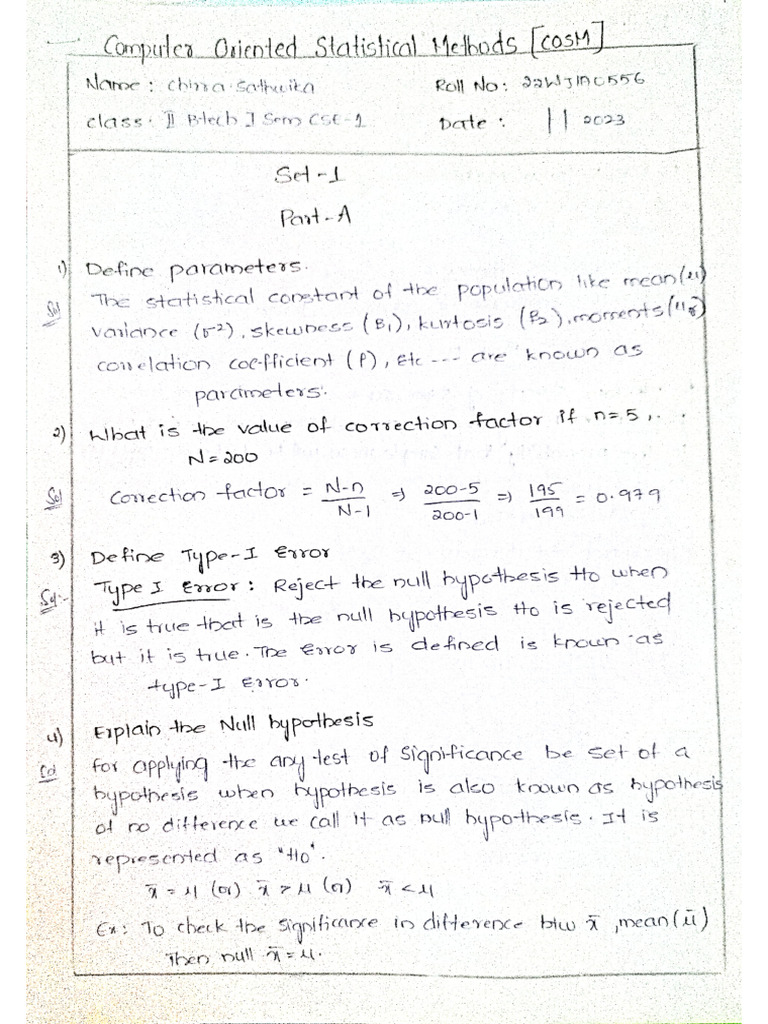 Computer Oriented Statistical Methods [COSM]
Name : Chinna Sathwika Roll No: 22WJ1A0556
class : II B.tech I Sem CSE-1 Date : || 2023
Set-1
Part-A
1) Define parameters.
Sol The statistical constant of the population like mean(μ)
variance (σ²), skewness (β₁), kurtosis (β₂), moments(μ
correlation coefficient (ρ), Etc --- are known as
parameters.
2) What is the value of correction factor if n=5,
N=200
Sol Correction factor = N-n/N-1 => 200-5/200-1 => 195/199 = 0.979
3) Define Type-I Error
Sol:- Type I Error : Reject the null hypothesis Ho when
it is true that is the null hypothesis Ho is rejected
but it is true. The Error is defined is known as
type-I Error.
4) Explain the Null hypothesis
Sol for applying the any test of significance be set of a
hypothesis when hypothesis is also known as hypothesis
of no difference we call it as null hypothesis. It is
represented as "Ho".
x̄ = μ (or) x̄ > μ (or) x̄ < μ
Ex: To check the significance in difference btw x̄, mean(μ̄)
Then null x̄ = μ.